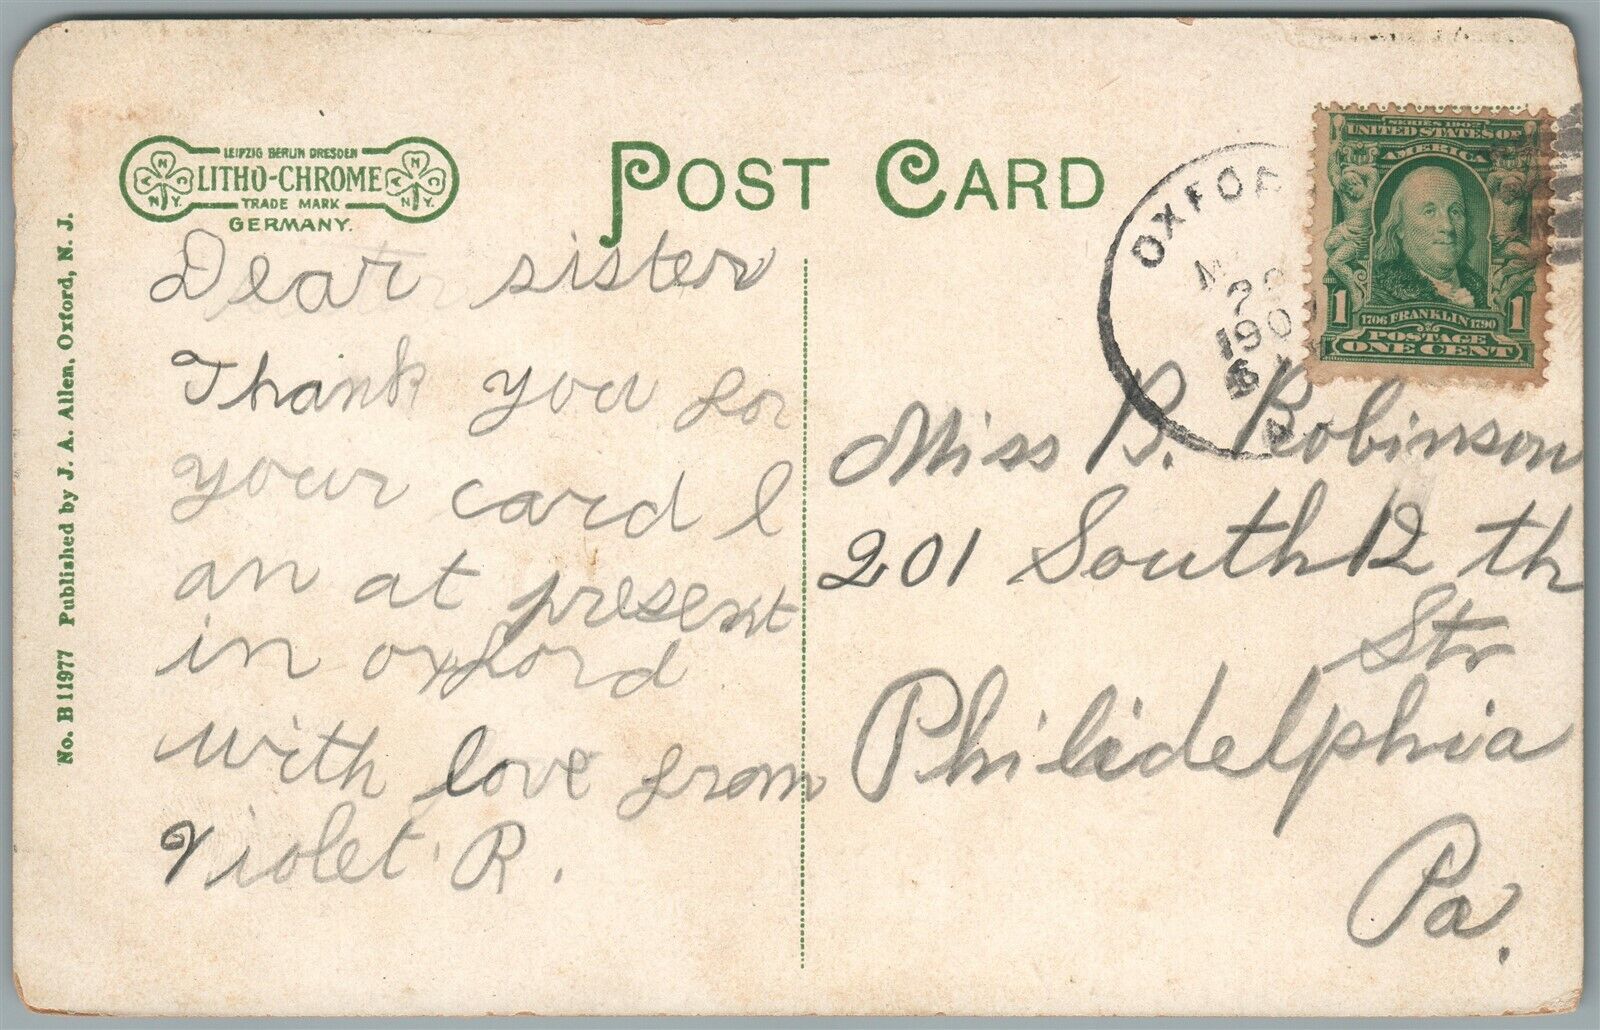 LEIPZIG BERLIN DRESDEN
LITHO-CHROME
TRADE MARK
GERMANY.
N
A C
N Y.
N
A C
N Y.
POST CARD
No. B 11977 Published by J. A. Allen, Oxford, N. J.
Dear sister
Thank you for
your card I
am at present
in oxford
with love from
Violet R.
OXFOR
20
190
SERIES 1902
UNITED STATES OF
AMERICA
1 1
1706 FRANKLIN 1790
POSTAGE
ONE CENT
Miss B. Robinson
201 South 12 th
Str
Philidelphia
Pa.